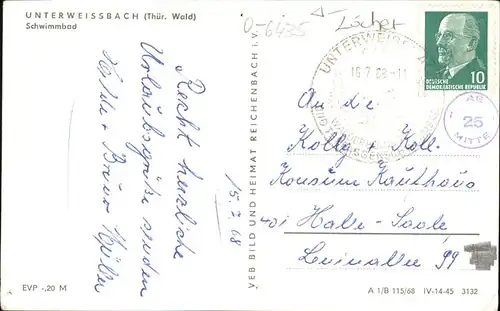 UNTERWEISSBACH (Thür. Wald)
Schwimmbad
O-6435
Löcher
UNTERWEISS
16.7.68-11
DEUTSCHE
DEMOKRATISCHE REPUBLIK
10
AE
25
MITTE
Recht herzliche
Urlaubsgrüße senden
15.7.68
VEB BILD UND HEIMAT REICHENBACH i. V.
An die
Kollg. + Koll.
Konsum Kaufhaus
401 Halle-Saale
Leninallee 99
EVP -,20 M
A 1/B 115/68 IV-14-45 3132